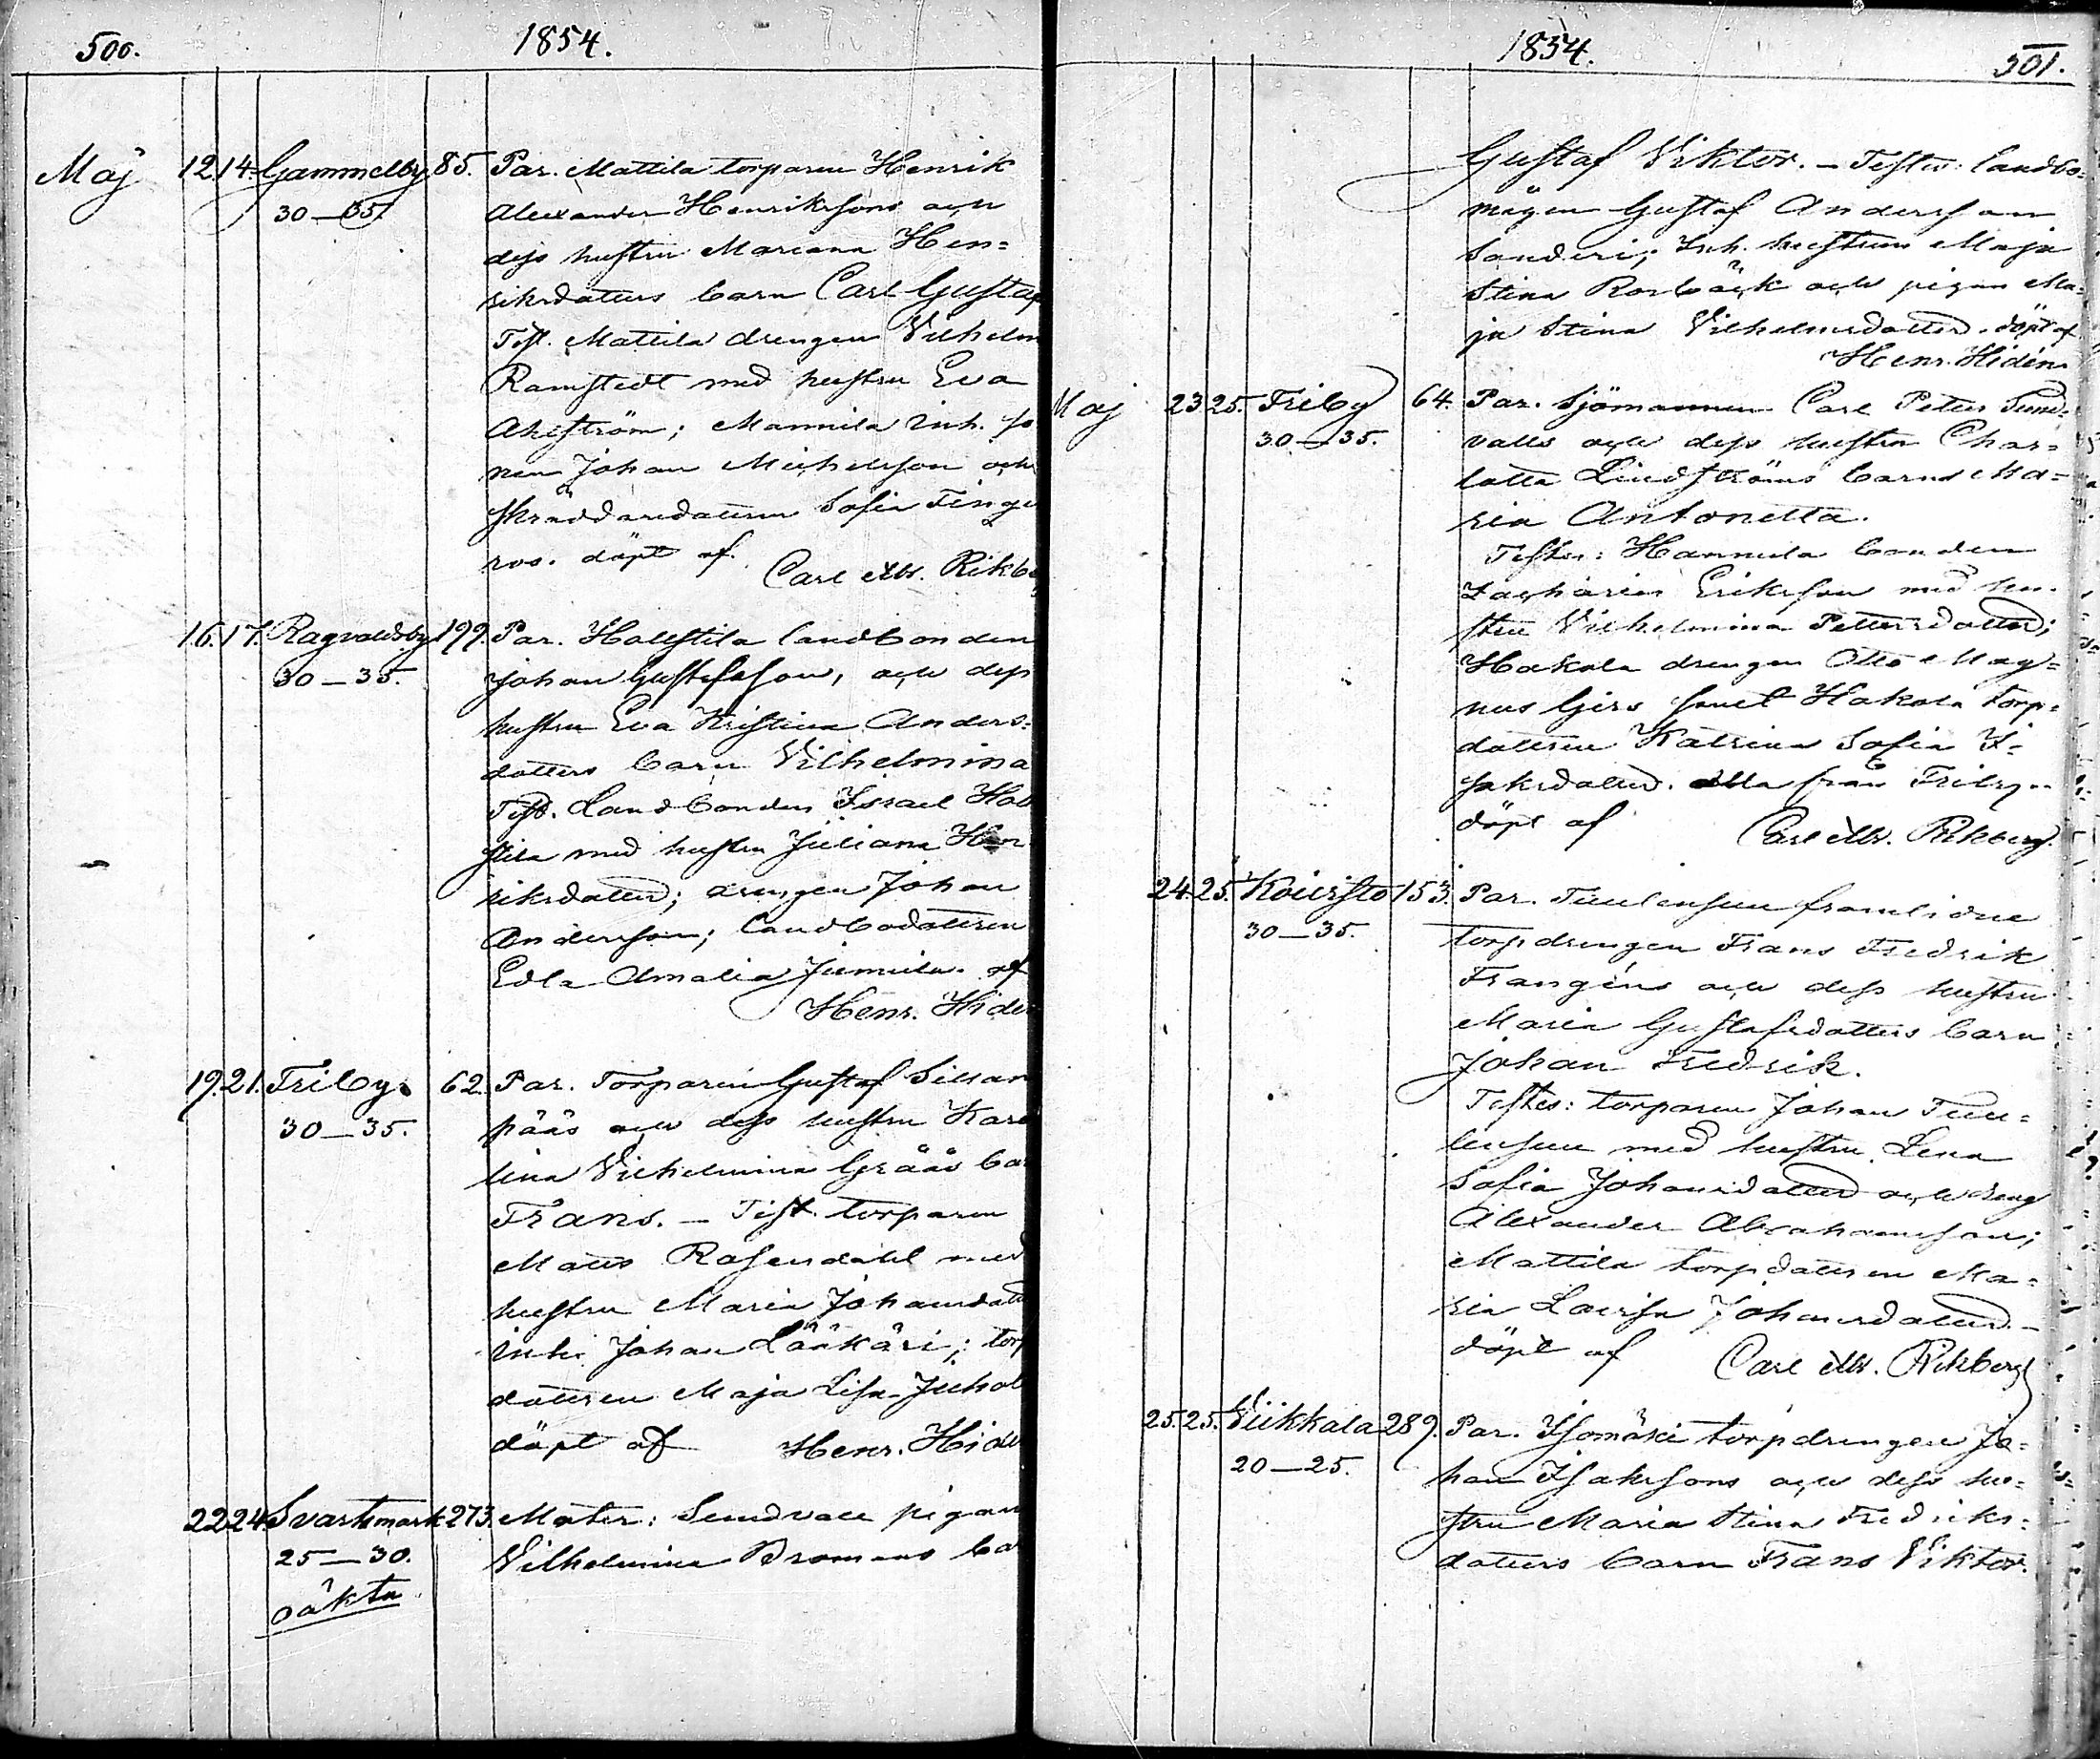 500.
1854.
Maj 12. 14. Gammelby 85. Par. Mattila torparen Henrik
30—35. Alexander Henrikssons och
dess hustru Mariana Hen=
riksdotters barn Carl Gustaf
Test. Mattila drengen Vilhelm
Ramstedt med hustru Eva
Ahlström; Mannila inh. so
nen Johan Michelsson och
skräddaredottren Sofia Finge
ros. döpt af
Carl M. Rikbe
16. 17. Ragvaldsby 199. Par. Hallstila landbonden
30—35. Johan Gustafsson, och dess
hustru Eva Kristina Anders=
dotters barn Vilhelmina
Test. Landbonden Israel Hall
stila med hustru Juliana Hen
riksdotter; drengen Johan
Andersson; landbodottren
Edla Amalia Jumila. af
Henr. Hidén
19. 21. Friby. 62. Par. Torparen Gustaf Sillan
30—35. pääs och dess hustru Karo
lina Vilhelmina Grääs bar
Frans. — Test. torparen
Matts Rosendahl med
hustru Maria Johansdott
inh. Johan Lääkäri; torp
dottren Maja Lisa Juhol
döpt af Henr. Hidé
22 24 Svartsmark 273. Mater: Sundvall pigan
25—30. Vilhelmina Bromans ba
oäkta
1854.
501.
Gustaf Viktor. — Testes: landbo=
mågen Gustaf Andersson
Sanderi; Inh. hustrun Maja
Stina Rosbäck och pigan Ma=
ja Stina Vilhelmsdotter. döpt af
Henr. Hidén
Maj 23 25. Friby 64. Par. Sjömannen Carl Peter Sund=
30—35. valls och dess hustru Char=
lotta Lindströms barn Ma=
ria Antonetta.
Testes: Hannula bonden
Zacharias Eriksson med hu-
stru Vilhelmina Pettersdotter;
Hakola drengen Otto Mag=
nus Girs samt Hakola torp=
dottren Katrina Sofia I=
saksdotter. alla från Friby.
döpt af Carl M. Rikberg.
24. 25. Koivisto 153. Par. Tuulensuu framlidne
30—35. torpdrengen Frans Fredrik
Frangéns och dess hustru
Maria Gustafsdotters barn
Johan Fredrik.
Testes: torparen Johan Tuu=
lensuu med hustru Lena
Sofia Johansdotter och dreng
Alexander Abrahamsson;
Mattila torpdottren Ma=
ria Lovisa Johansdotter —
döpt af Carl M. Rikberg
25. 25. Viikkala 289. Par. Isomäki torpdrengen Jo=
20—25. han Isakssons och dess hu=
stru Maria Stina Fredriks=
dotters barn Frans Viktor.